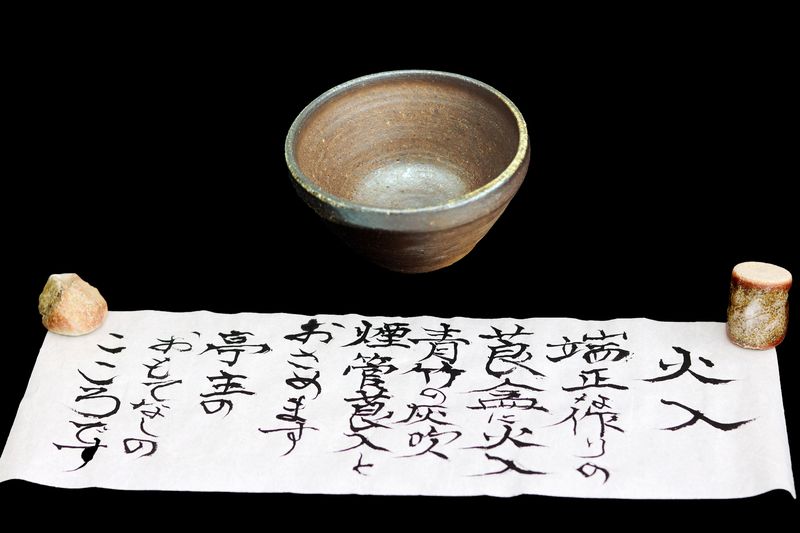 火入
端正な作りの
莨盆に火入
青竹の灰吹
煙管莨入と
おさめます
亭主の
おもてなしの
こころです